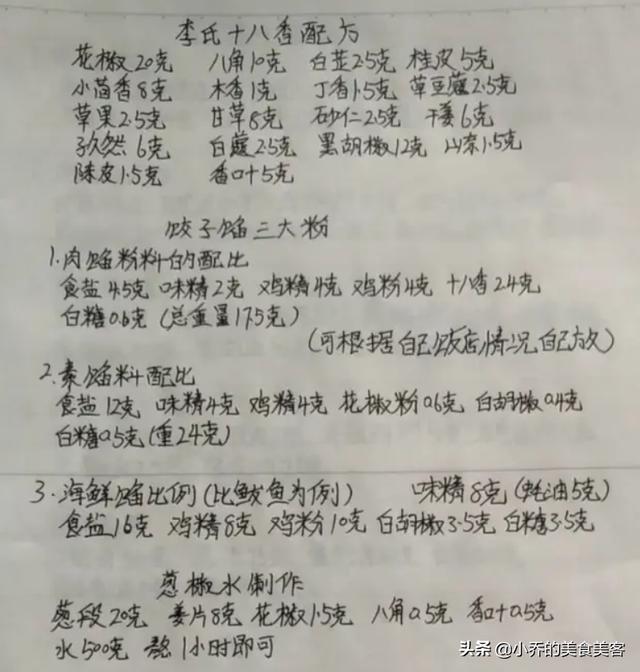 李氏十八香配方
花椒20克 八角10克 白芷2.5克 桂皮5克
小茴香8克 木香1克 丁香1.5克 草豆蔻2.5克
草果2.5克 甘草8克 砂仁2.5克 干姜6克
孜然6克 白蔻2.5克 黑胡椒12克 山奈1.5克
陈皮1.5克 香叶5克
饺子馅三大粉
1.肉馅粉料的配比
食盐4.5克 味精2克 鸡精4克 鸡粉4克 十八香2.4克
白糖0.6克(总重量17.5克)
(可根据自己饭店情况自己放)
2.素馅料配比
食盐12克 味精4克 鸡精4克 花椒粉0.6克 白胡椒0.4克
白糖0.5克(重24克)
3.海鲜馅比例(比鲅鱼为例) 味精8克(蚝油5克)
食盐16克 鸡精8克 鸡粉10克 白胡椒3.5克 白糖3.5克
葱椒水制作
葱段20克 姜片8克 花椒1.5克 八角0.5克 香叶0.5克
水500克 熬1小时即可
头条 @小乔的美食美客